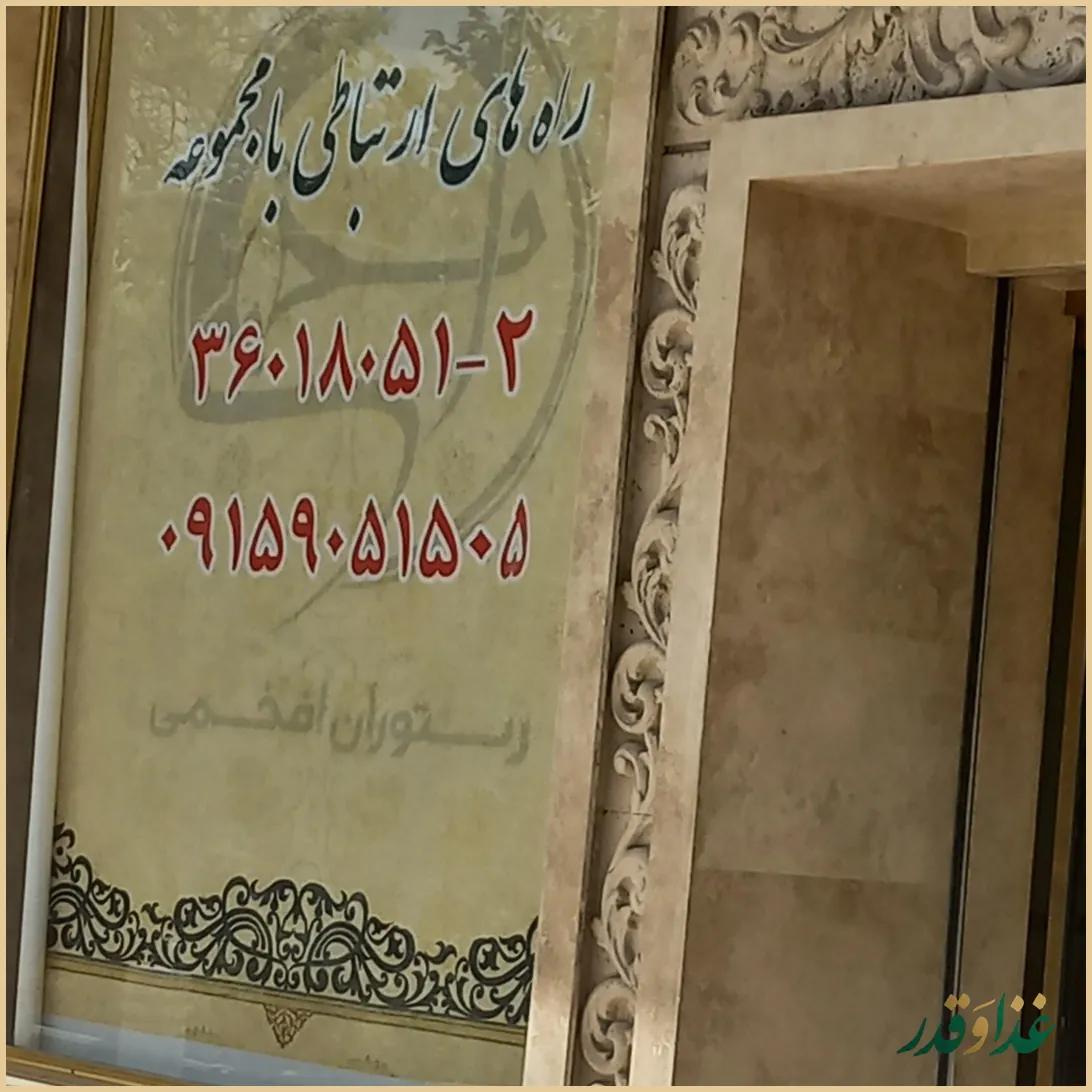 راه های ارتباطی با مجموعه
۳۶۰۱۸۰۵۱-۲
۰۹۱۵۹۰۵۱۵۰۵
رستوران افخمی
غذا و قدر